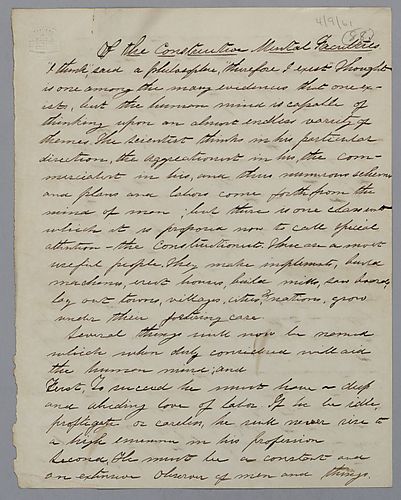 4/9/61
(88)
Of the Constructive Mental Faculties
"I think, said a philosopher, "therefore I exist. Thought
is one among the many evidences that one ex-
ists, but the human mind is capable of
thinking upon an almost endless variety of
themes. The scientist thinks in his particular
direction, the agriculturist in his, the com-
mercialist in his, and thus numerous schemes
and plans and labors come forth from the
mind of man; but there is one class
which it is proposed now to call special
attention - the Constructionist. These are a most
useful people. They make implements, build
machines, erect houses, build mills, saw boards,
lay out towns, villages, cities, & nations, grow
under their fostering care
Several things will now be named
which when duly considered will aid
the human mind; and
First, To succeed he must have a deep
and abiding love of labor. If he be idle,
profligate or careless, he will never rise to
a high eminence in his profession
Second, He must be a constant and
an extensive observer of men and things.